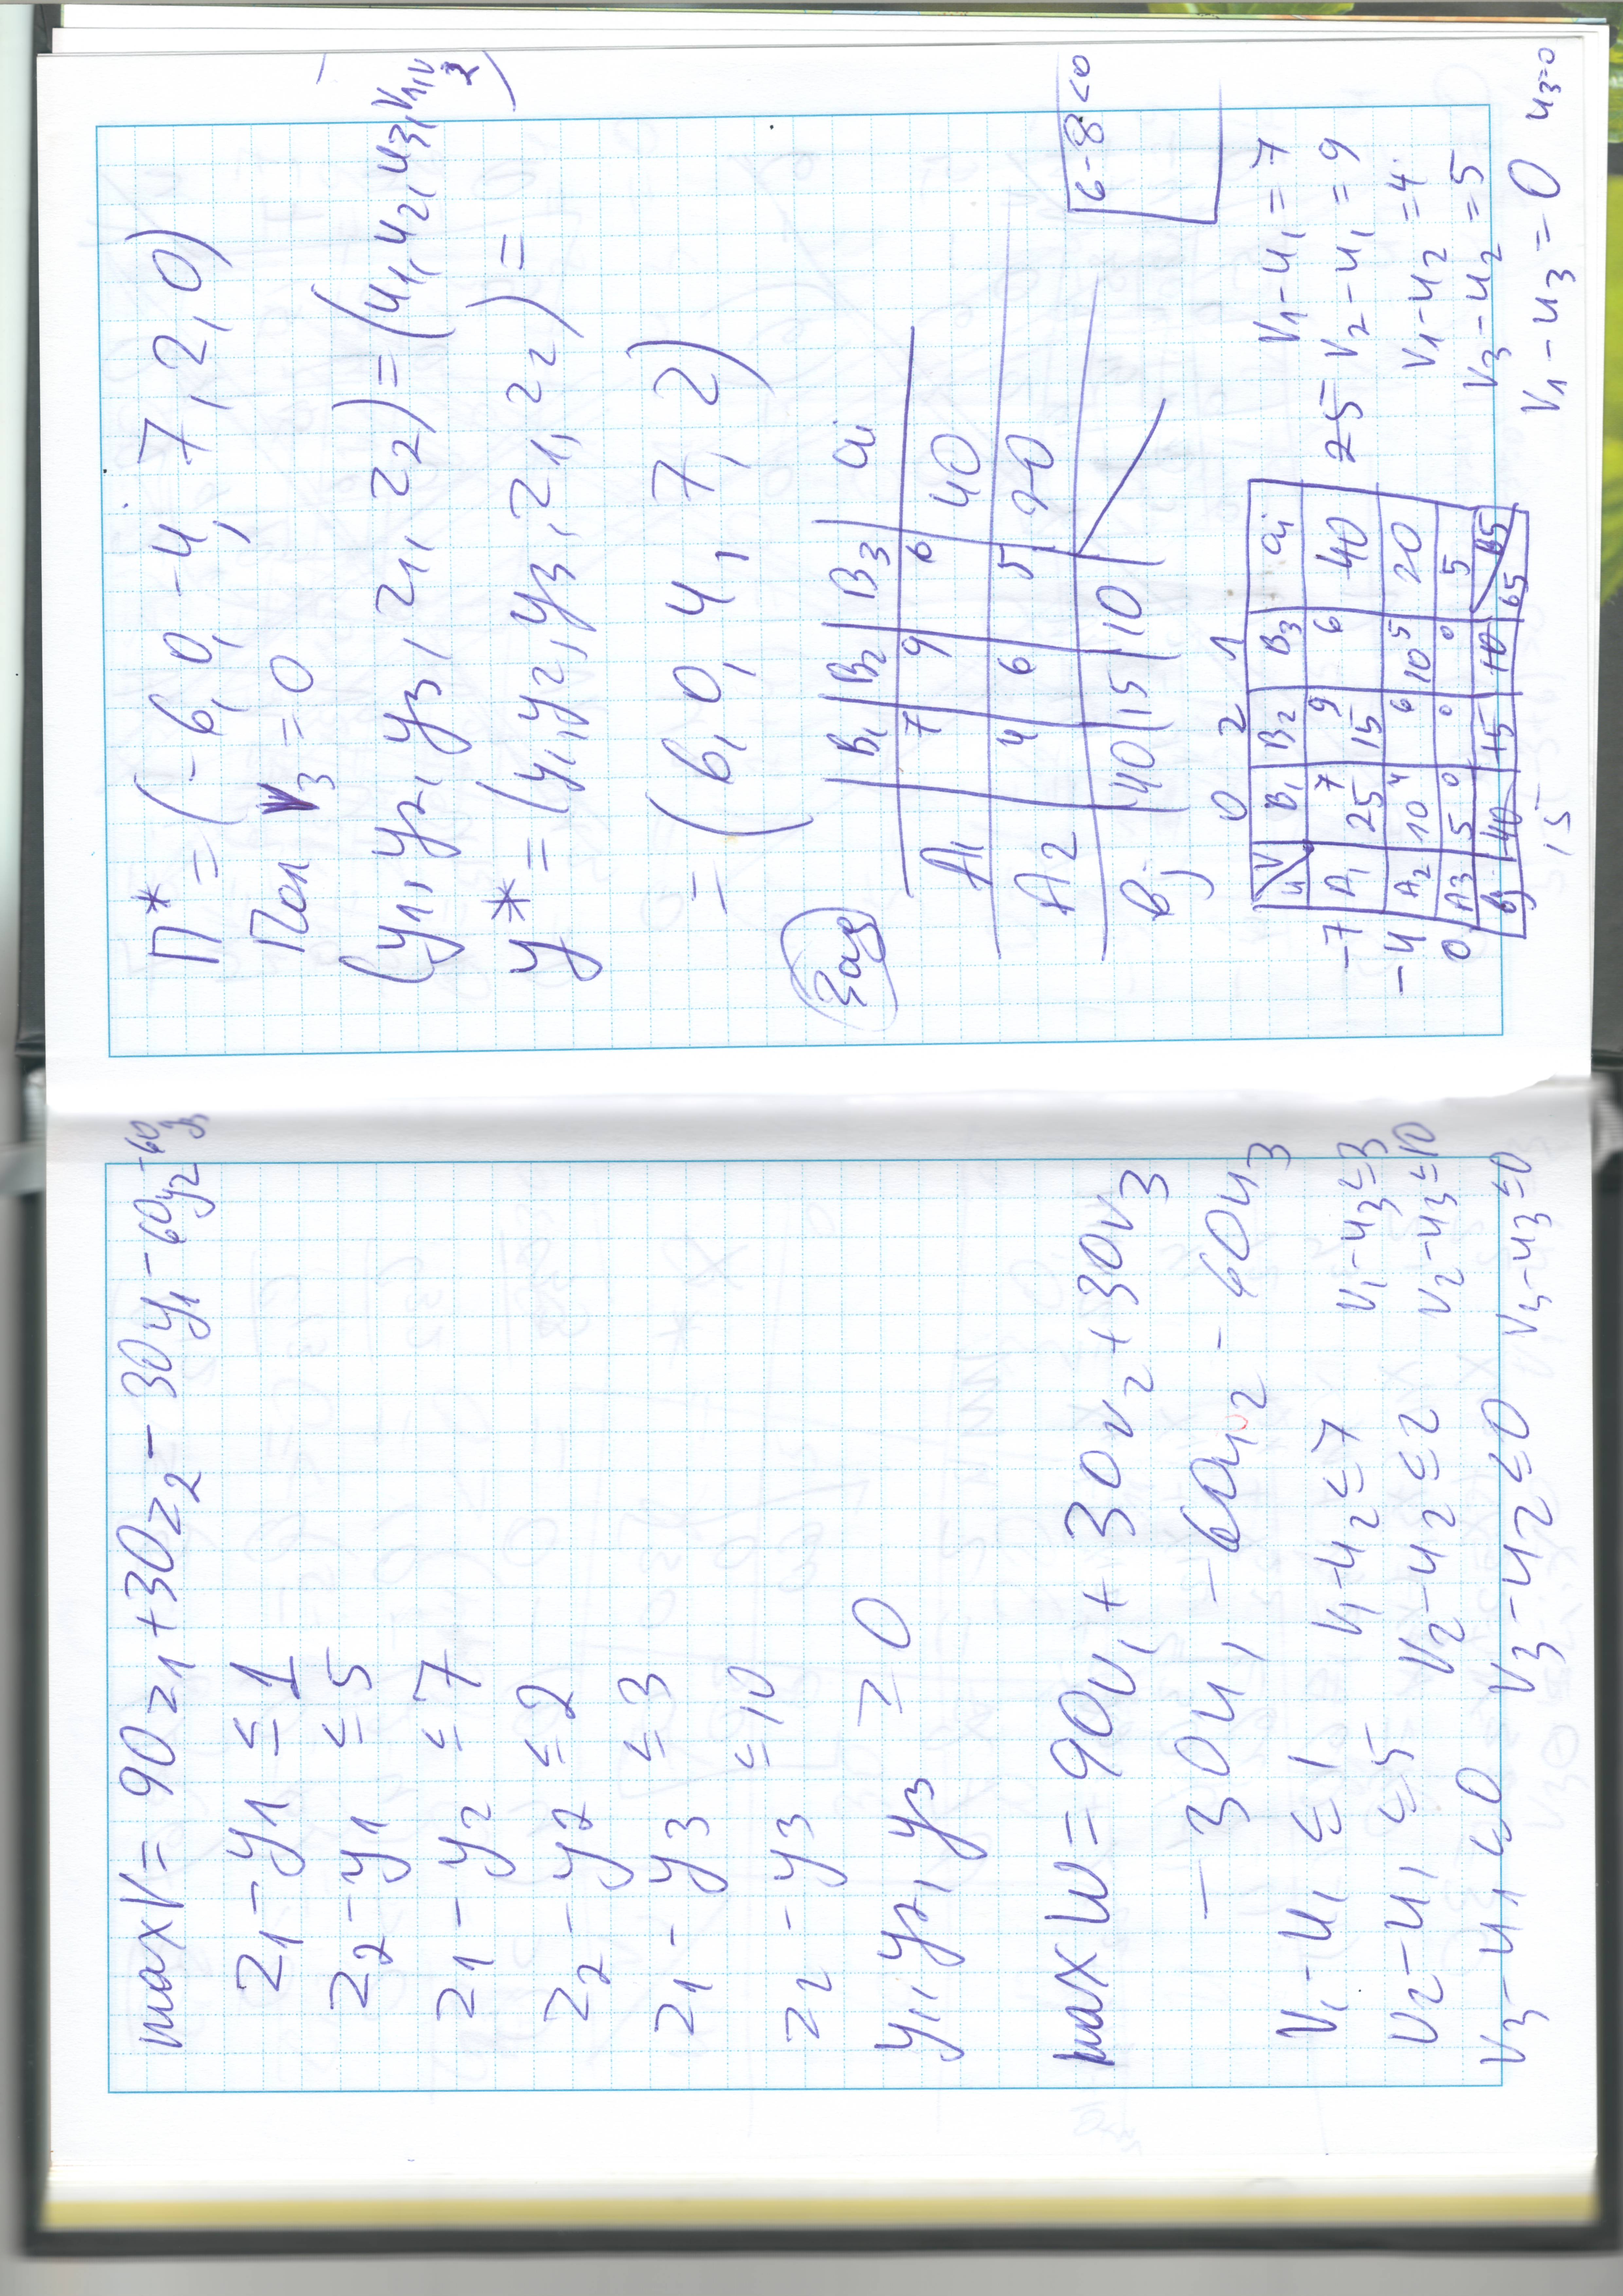 max V = 90z₁ + 30z₂ - 30y₁ - 60y₂ - 60y₃
z₁ - y₁ ≤ 1
z₂ - y₁ ≤ 5
z₁ - y₂ ≤ 7
z₂ - y₂ ≤ 2
z₁ - y₃ ≤ 3
z₂ - y₃ ≤ 10
y₁, y₂, y₃ ≥ 0
max W = 90v₁ + 30v₂ + 30v₃
- 30u₁ - 60u₂ - 60u₃
v₁ - u₁ ≤ 1 v₁ - u₂ ≤ 7 v₁ - u₃ ≤ 3
v₂ - u₁ ≤ 5 v₂ - u₂ ≤ 2 v₂ - u₃ ≤ 10
v₃ - u₁ ≤ 0 v₃ - u₂ ≤ 0 v₃ - u₃ ≤ 0
П* = (-6, 0, -4, 7, 2, 0)
Пол v₃ = 0
(y₁, y₂, y₃, z₁, z₂) = (u₁, u₂, u₃, v₁, v₂)
y* = (y₁, y₂, y₃, z₁, z₂) =
= (6, 0, 4, 7, 2)
Зад
B₁ B₂ B₃ ai
A₁ 7 9 6 40
A₂ 4 6 5 20
bj 40 15 10
6-8<0
0 2 1
u V B₁ B₂ B₃ ai
-7 A₁ 25 7 15 9 6 40
-4 A₂ 10 4 6 10 5 20
0 A₃ 5 0 0 0 5
bj 40 15 10 65 65
15
25
v₁ - u₁ = 7
v₂ - u₁ = 9
v₁ - u₂ = 4
v₃ - u₂ = 5
v₁ - u₃ = 0 u₃=0